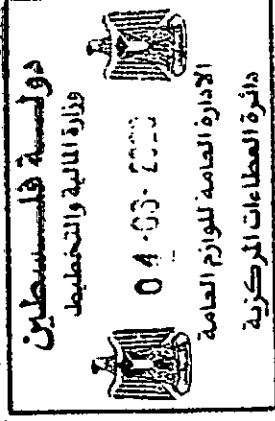 دولة فلسطين
وزارة المالية والتخطيط
04 -03-
الادارة العامة للوازم العامة
دائرة العطاءات المركزية